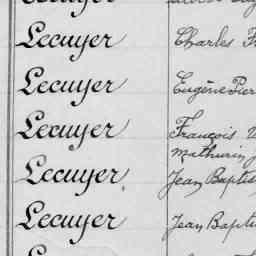 Lecuyer Charles
Lecuyer Eugène
Lecuyer François
Mathurin
Lecuyer Jean
Lecuyer Jean